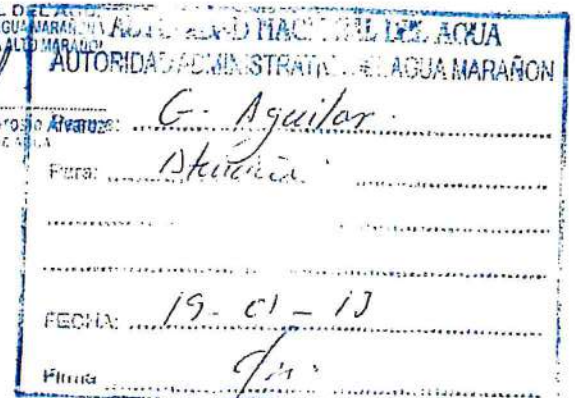 AUTORIDAD NACIONAL DEL AGUA
AUTORIDAD ADMINISTRATIVA DEL AGUA MARAÑON
G. Aguilar.
Para: Atención
FECHA: 19-01-13
Firma